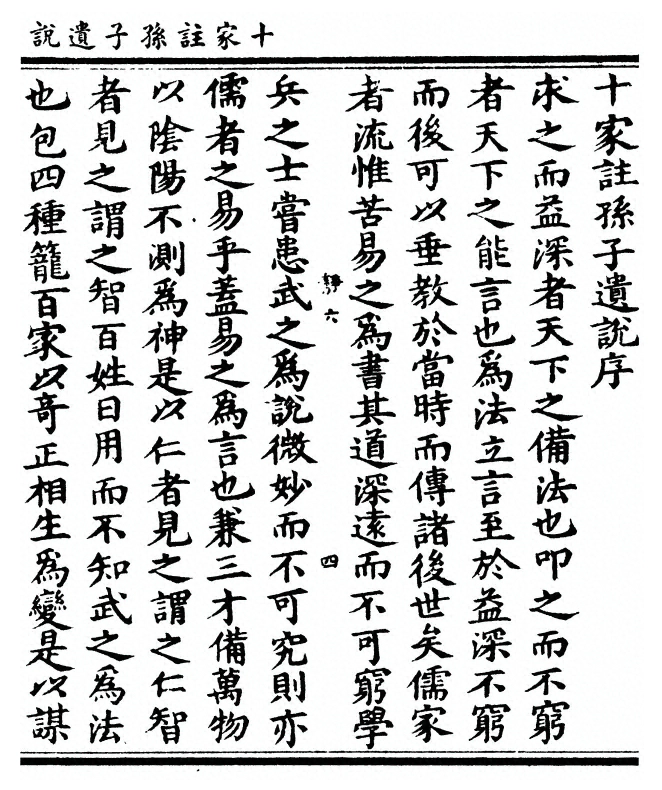 十家註孫子遺說
十家註孫子遺說序
求之而益深者天下之備法也叩之而不窮
者天下之能言也為法立言至於益深不窮
而後可以垂教於當時而傳諸後世矣儒家
者流惟苦易之為書其道深遠而不可窮學
靜六
四
兵之士嘗患武之為說微妙而不可究則亦
儒者之易乎蓋易之為言也兼三才備萬物
以陰陽不測為神是以仁者見之謂之仁智
者見之謂之智百姓日用而不知武之為法
也包四種籠百家以奇正相生為變是以謀